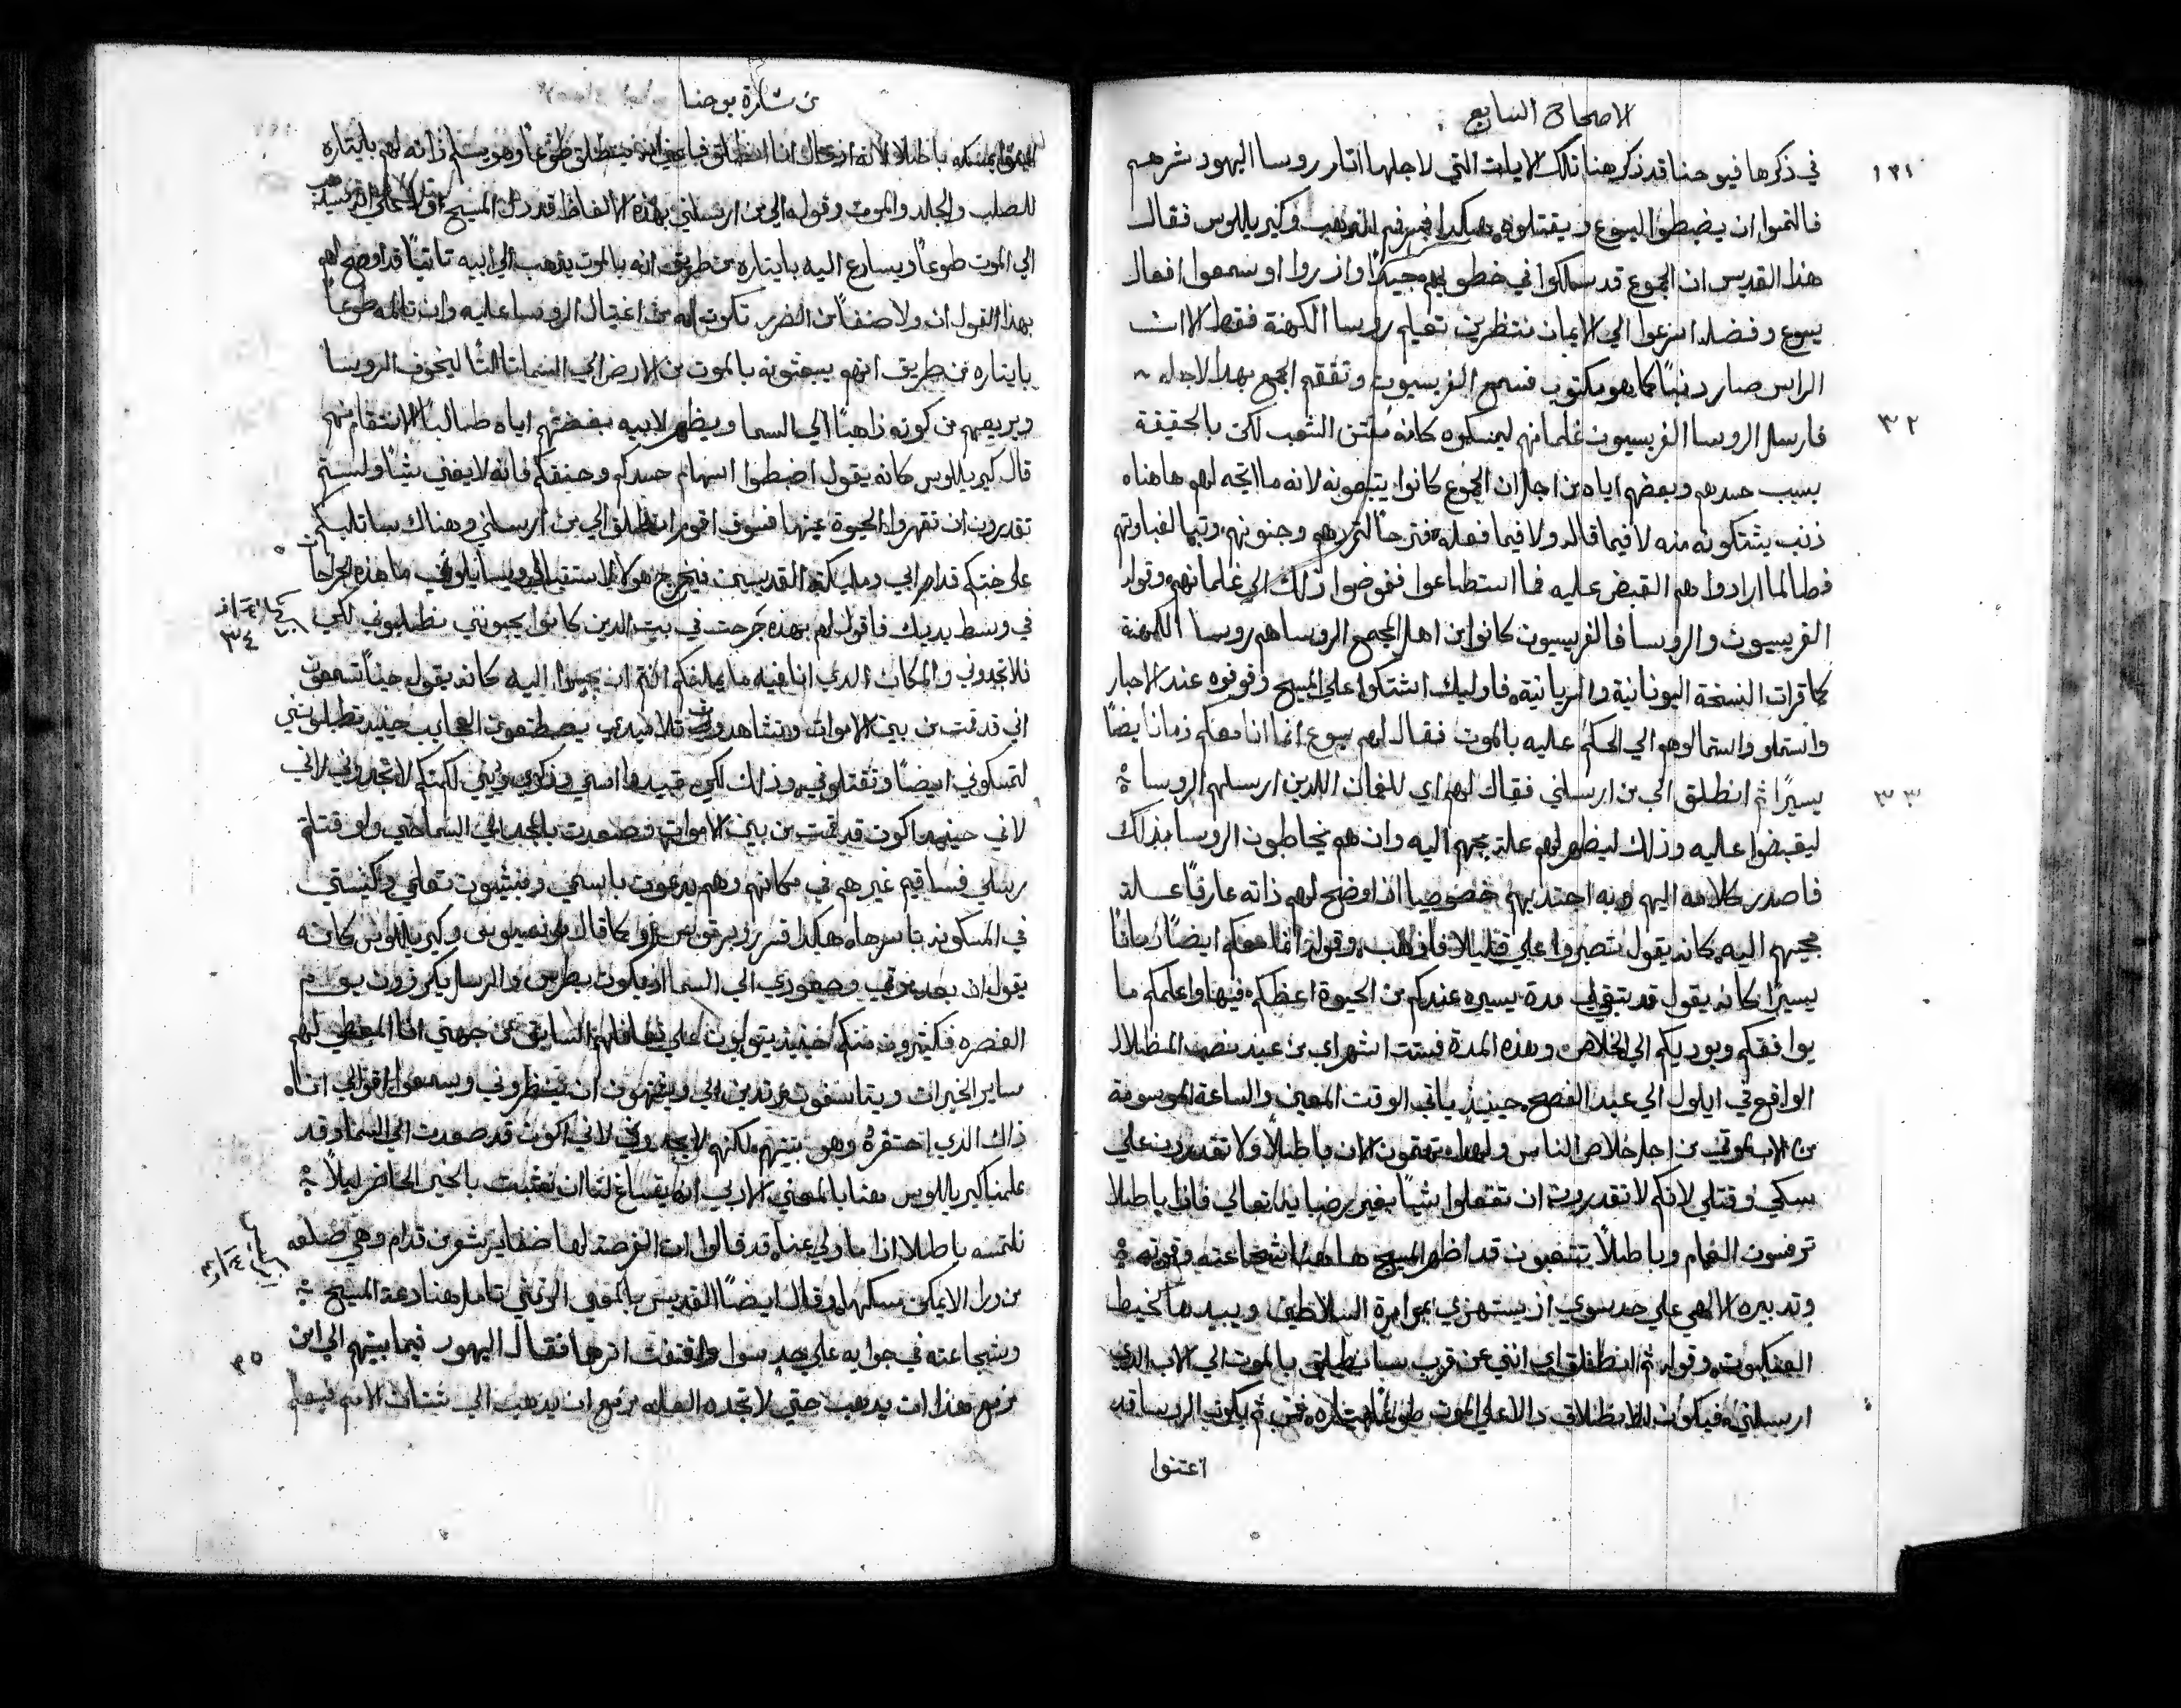 الاصحاح السابع
١٣١
في ذكرها فيوحنا قد ذكر هنا تلك الايات التي لاجلها اثار روسا اليهود شرهم
فالتموا ان يضبطوا اليسوع ويقتلوه هكدا فم الدهب وكيرياللوس فقال
هذا القديس ان الجموع قد سلكوا في خطوبهم جيدًا واذ روا او سمعوا افعال
يسوع وفضله اسرعوا الي الايمان منتظرين تعليم روسا الكهنة فقط الا ان
الراس صار دنبًا كما هو مكتوب فسمع الفريسيون وتقمقم الجمع بهدا لاجله
٣٢
فارسل الروسا الفريسيون غلمانهم ليمسكوه كانه يفتن الشعب لكن بالحقيقة
بسبب حسدهم وبغضهم اياه من اجل ان الجموع كانوا يتبعونه لانه ما اتجه لهم هاهناه
ذنب يشتكونه منه لا فيما قاله ولا فيما فعله وجنونهم وتبا لغباوتهم
فطالما ارادوا هم القبض عليه فما استطاعوا ففوضوا ذلك الي غلمانهم وقوله
الفريسيون والروسا فالفريسيون كانوا من اهل المجمع الروسا هم روسا الكهنة
كما قرات النسخة اليونانية والسريانية فاوليك اشتكوا علي المسيح وقوفوه عند الاحبار
واستمالوهم الي الحكم عليه بالموت فقال لهم يسوع انما انا معكم زمانا ايضًا
٣٣
يسيرًا ثم انطلق الي من ارسلني فقال لهم اي للغلمان اللدين ارسلهم الروسا
ليقبضوا عليه وذلك ليظهر لهم علة مجيهم اليه وان هو يخاطبون الروسا بذلك
فاصدر كلامه اليهم وبه اجتدبهم خصوصيا اذ اوضح لهم ذاته عارفًا علة
مجيهم اليه كانه يقول تصبروا علي قليلا فاذهب وقوله انما معكم ايضًا زمانًا
يسيرًا كانه يقول قد بقي لي مدة يسيره عندكم من الحيوة اعظكم فيها واعلمكم ما
يوافقكم ويوديكم الي الخلاص وهذه المدة فستت اشهر اي من عيد نصب المظلال
الواقع في ايلول الي عيد الفصح حينيذ ياتي الوقت المعين والساعة المرسومة
من الاب لموتي من اجل خلاص الناس ولهدا تهتمون الان باطلًا ولا تقدرون علي
مسكي وقتلي لانكم لا تقدرون ان تفعلوا شيًا بغير رضا يدا تعالي فاذا باطلا
ترفسون الغمام وباطلًا تتعبون قد اظهر المسيح هاهنا شجاعته وقوته
وتدبيره الالهي علي حد سوي اذ يستهزي بموامرة السلاطين ويبيدها كخيط
العنكبوت وقوله ثم انطلق اي انني عن قرب سانطلق بالموت الي الاب الدي
ارسلني فيكون الانطلاق دالا علي الموت طوعًا باختياره فمن ثم يكون الروسا قد
اعتنوا
من بشارة يوحنا
بمسكه باطلا لانه اذ قال انا انطلق فاعني انه ينطلق طوعًا وهو يسلم ذاته لهم بايثاره
للصلب والجلد والموت وقوله الي من ارسلني بهذه الالفاظ قد دل المسيح اولا علي انه
الي الموت طوعًا ويسارع اليه بايثاره من طريق انه بالموت يذهب الي ابيه ثانيًا قد اوضح لهم
بهذا القول ان ولا صنفًا من الضرر تكون له من اغتيال الروسا عليه وان تالمه طوعًا
بايثاره من طريق انهم يبعثونه بالموت من الارض الي السما ثالثًا ليخوف الروسا
ويريعهم من كونه ذاهبًا الي السما ويظهر لابيه بغضتهم اياه طالبًا الانتقام منهم
قال كيرياللوس كانه يقول اضبطوا سهام حسدكم وحنقكم فانه لا يغني شيًا ولستم
تقدرون ان تقهروا الحيوة عينها فسوف اقوم انطلق الي من ارسلني وهناك ساتلبكم
علي خبثكم قدام ابي ومليكته القديسين فيخرج هولاء لاستقبالي ويسايلوني ما هذه الجراحات
في وسط يديك فاقول لهم بهذه جرحت في بيت الدين كانوا يحبونني تطلبوني لكي
٣٤
فلا تجدوني والمكان الدي انا فيه ما يمكنكم انتم ان تجيوا اليه كانه يقول حينًا تسمعون
اني قد قمت من بين الاموات وتشاهدون تلاميدي يصطنعون العجايب حينيد تطلبونني
لتمسكوني ايضًا وتقتلوني وذلك لكي تبيدوا اسمي وذكري وديني لكنكم لا تجدوني لاني
لاني حينيد اكون قد قمت من بين الاموات وصعدت بالمجد الي السما حتي ولو قتلتم
رسلي فساقيم غيرهم في مكانهم وهم يدعون باسمي ويبثون تعليمي وكنيستي
في المسكونه باسرها هكدا قرر روبرتوس كما قال وكيرياللوس كانه
يقول ان بعد موتي وصعودي الي السما اذ يكون بطرس والرسل يكرزون يوم
العنصره فكثيرون منكم حينيذ يتولون علي السابق من جهتي انا المعطي لهم
ساير الخيرات ويتاسفون مرتدين الي ويشتهون ان ينظروني ويسمعوا اقوالي انا
ذلك الذي احتقره وهو بينهم لكنهم لا يجدوني لاني اكون قد صعدت الي السما وقد
علمنا كيرياللوس هنا بالمعني الادبي انه يساغ لنا ان نتشبث بالخير الحاضر ليلًا
نلتمسه باطلا اذا ما ولي عنا وقد قالوا ان الفرصة لها ضفاير شعر من قدام وهي صلعه
من ورا لا يمكن مسكها وقال ايضًا القديس بالمعني تامل هنا دعة المسيح
٣٥
وشجاعته في جوابه علي حد سوا واقتف اثرها فقال اليهود فيما بينهم الي اين
مزمع هذا ان يدهب حتي لا نجده العله مزمع ان يدهب الي شتات الامم فيعلم